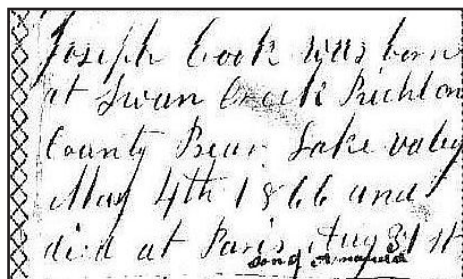 Joseph Cook was born
at Swan Creek Richlon
County Bear Lake valey
May 4th 1866 and
died at Paris Aug 31st
son of